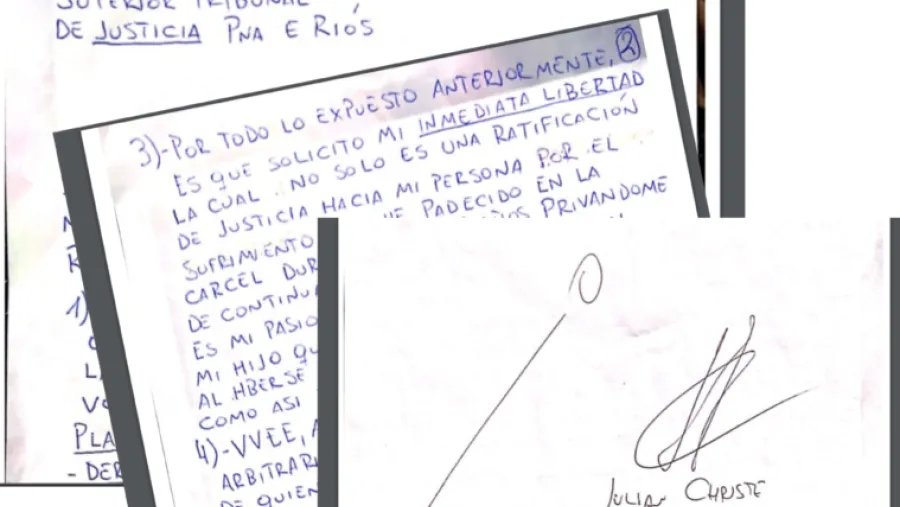 SUPERIOR TRIBUNAL
DE JUSTICIA PNA E RIOS
3)-POR TODO LO EXPUESTO ANTERIORMENTE, 2
ES QUE SOLICITO MI INMEDIATA LIBERTAD
LA CUAL NO SOLO ES UNA RATIFICACIÓN
DE JUSTICIA HACIA MI PERSONA POR EL
SUFRIMIENTO PADECIDO EN LA
CARCEL DUR PRIVANDOME
DE CONTINU
ES MI PASIO
MI HIJO QU
AL HBERSE
COMO ASI
4)-VVEE, A
ARBITRARI
DE QUIEN
1)
PLA
- DER
JULIAN CHRISTE